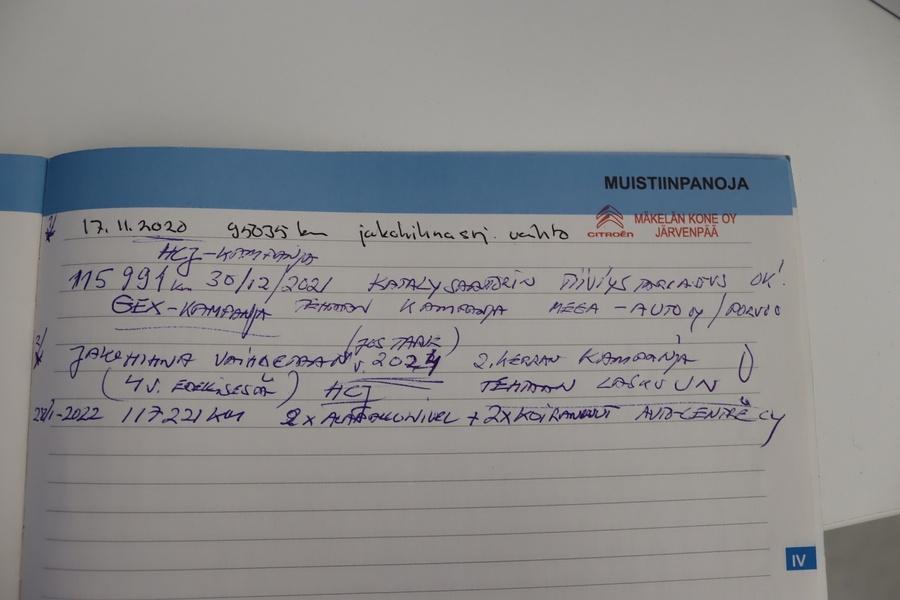 MUISTIINPANOJA
17.11.2020 95035 km jakohihnasrj. vaihto
CITROËN
MÄKELÄN KONE OY
JÄRVENPÄÄ
HCJ-KAMPANJA
115991 km 30/12/2021 KATALYSAATTORIN TIIVIYSTARKASTUS OK!
GEX-KAMPANJA TEHTAAN KAMPANJA MEGA-AUTO OY/PORVOO
2/ JAKOHIHNA VAIHDETAAN (JOS TARK) v. 2024 2. KERRAN KAMPANJA
(4 v. EDELLISESTÄ) HCJ TEHTAAN LASKUUN
117221 KM 2x ALAPALLONIVEL + 2x KOIRANLUUT AUTO-CENTRE OY
IV